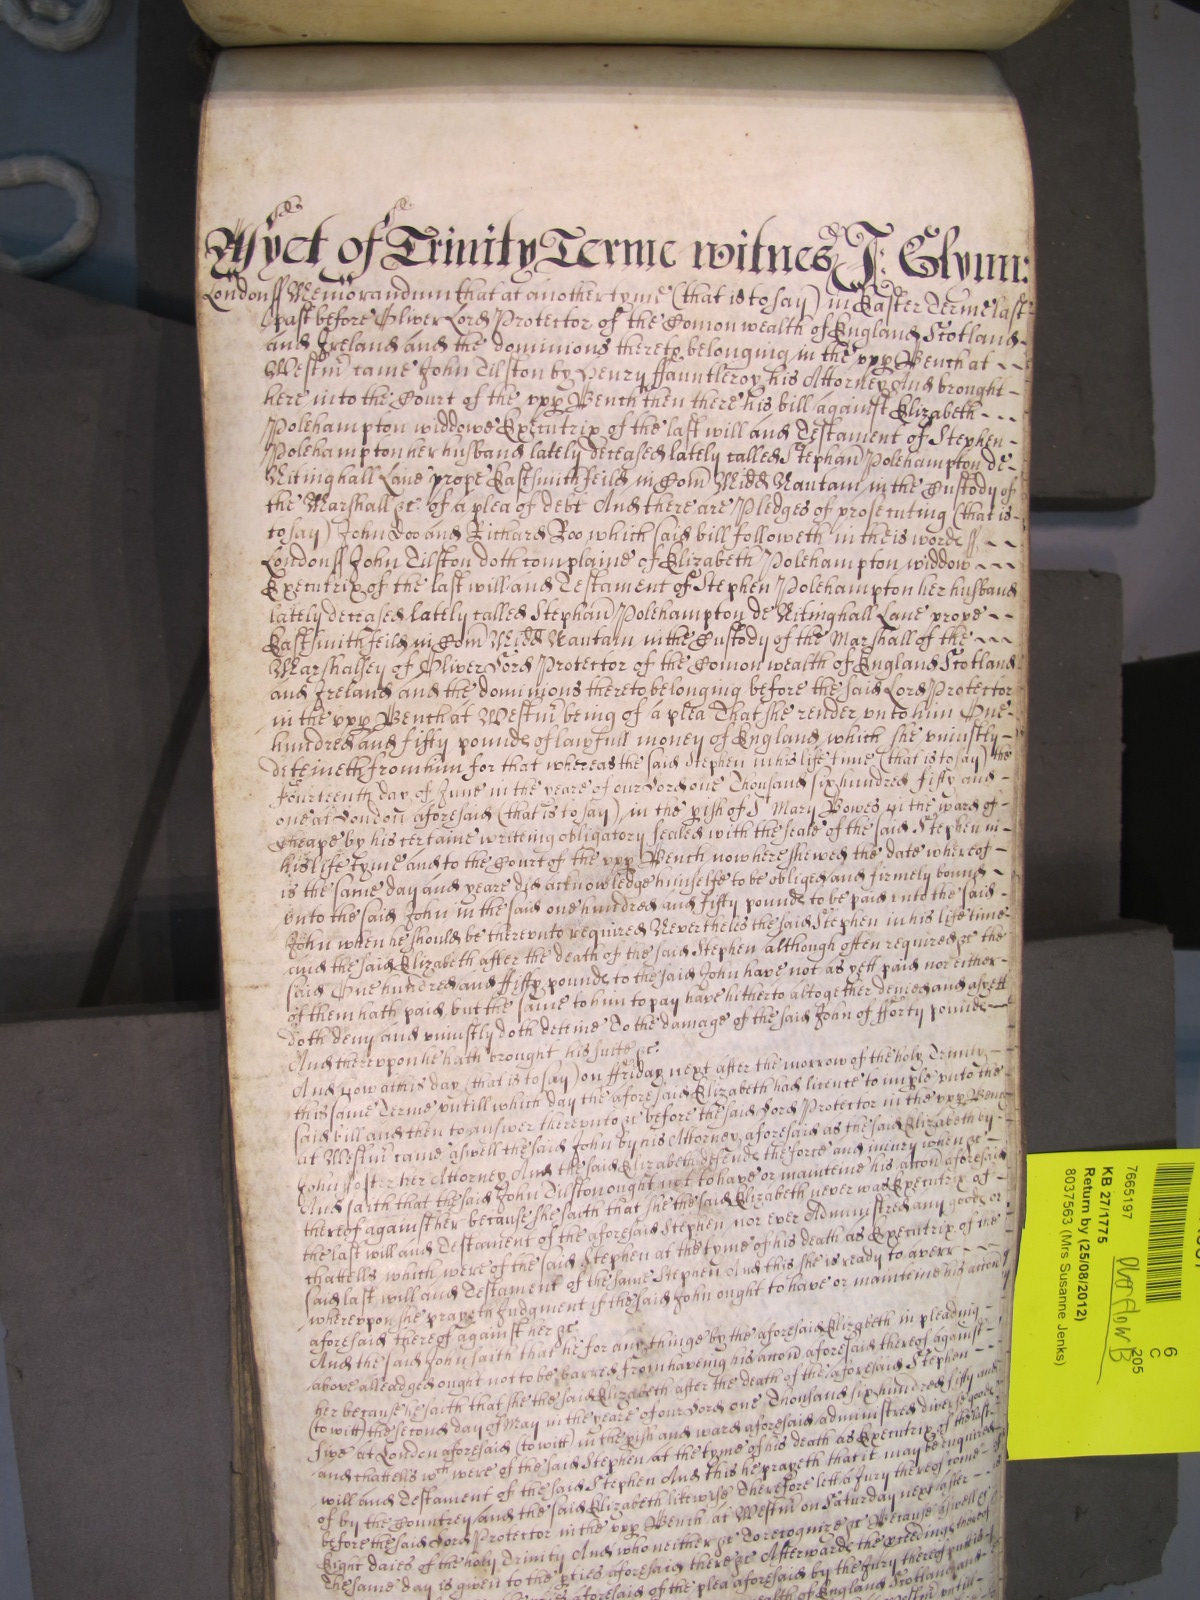 As yet of Trinity Terme witnes J: Glynn:
London ss Memorandum that at another tyme (that is to say) in Easter Terme last
past before Oliver Lord Protector of the Comonwealth of England Scotland
and Ireland and the dominions thereto belonging in the upp Bench at
Westm came John Tilston by Henry Fauntleroy his Attorney And brought
here into the Court of the upp Bench then there his bill against Elizabeth
Polehampton widdowe Executrix of the last will and Testament of Stephen
Polehampton her husband lately deceased lately called Stephan Polehampton de
Nitinghall Lane prope Eastsmithfeild in Com Midd Nautam in the Custody of
the Marshall &c of a plea of debt And there are Pledges of prosecuting (that is
to say) John Doo and Richard Roo which said bill followeth in theis words ss
London ss John Tilston doth complaine of Elizabeth Polehampton widdow
Executrix of the last will and Testament of Stephen Polehampton her husband
lately deceased lately called Stephan Polehampton de Nitinghall Lane prope
Eastsmithfeild in Com Midd Nautam in the Custody of the Marshall of the
Marshalsey of Oliver Lord Protector of the Comonwealth of England Scotland
and Ireland and the dominions thereto belonging before the said Lord Protector
in the upp Bench at Westm being of a plea That she render unto him One
hundred and fifty pounds of lawfull money of England which she uniustly
deteineth from him for that whereas the said Stephen in his life time (that is to say) the
fourteenth day of June in the yeare of our Lord one Thousand six hundred fifty and
one at London aforesaid (that is to say) in the pish of St Mary Bowe in the ward of
Cheape by his certaine writeing obligatory sealed with the seale of the said Stephen in
his life tyme and to the Court of the upp Bench now here shewed the date whereof
is the same day and yeare did acknowledge himselfe to be obliged and firmely bound
unto the said John in the said one hundred and fifty pounds to be paid unto the said
John when he should be thereunto required Nevertheles the said Stephen in his life time
and the said Elizabeth after the death of the said Stephen although often required &c the
said One hundred and fifty pounds to the said John have not as yett paid nor either
of them hath paid but the same to him to pay have hitherto altogether denied and as yett
doth deny and uniustly doth deteine To the damage of the said John of fforty pounds
And thereupon he hath brought his suite &c
And now at this day (that is to say) on ffriday next after the morrow of the holy Trinity
this same Terme untill which day the aforesaid Elizabeth had licence to imple unto the
said bill and then to answer thereunto &c before the said Lord Protector in the upp Bench
at Westm came aswell the said John by his Attorney aforesaid as the said Elizabeth by
John Foster her Attorney And the said Elizabeth defends the force and iniury when &c
And saith that the said John Tilston ought not to have or mainteine his accon aforesaid
thereof against her because she saith that she the said Elizabeth never was Executrix of
the last will and Testament of the aforesaid Stephen nor ever Administred any goods or
chattells which were of the said Stephen at the tyme of his death as Executrix of the
said last will and Testament of the same Stephen And this she is ready to averr
whereupon she prayeth Judgment if the said John ought to have or mainteine his accon
aforesaid thereof against her &c
And the said John saith that he for any thinge by the aforesaid Elizabeth in pleading
above alleadged ought not to be barred from haveing his accon aforesaid thereof against
her because he saith that she the said Elizabeth after the death of the aforesaid Stephen
(to witt) the second day of May in the yeare of our Lord one Thousand six hundred fifty and
five at London aforesaid (to witt) in the pish and ward aforesaid administred diverse goods
and chattells wch were of the said Stephen at the tyme of his death as Executrix of the last
will and Testament of the said Stephen And this he prayeth that it may be enquired
of by the Countrey and the said Elizabeth likewise Therefore lett a Jury thereof come
before the said Lord Protector in the upp Bench at Westm on Saturday next after
Eight daies of the holy Trinity And who neither &c To recognize &c Because aswell &c
The same day is given to the pties aforesaid there &c Afterwards the pceedings thereof
aforesaid of the plea aforesaid by the Jury thereof
of England Scotland and
untill
7665197
KB 27/1775
Return by (25/08/2012)
8037563 (Mrs Susanne Jenks)
6
C
205